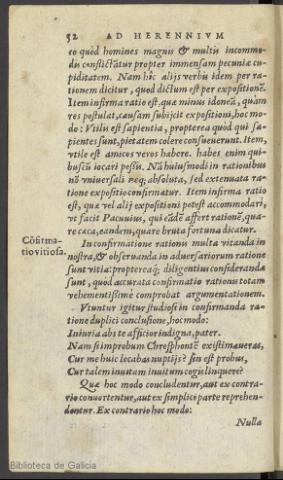 52 AD HERENNIVM
eo quòd homines magnis & multis incommo-
dis conflictātur propter immensam pecuniæ cu-
piditatem. Nam hîc alijs verbis idem per ra-
tionem dicitur, quod dictum est per expositionē.
Item infirma ratio est, quæ minus idonea, quàm
res postulat, causam subijcit expositioni, hoc mo-
do: Vtilis est sapientia, propterea quòd qui sa-
pientes sunt, pietatem colere consueuerunt. Item,
vtile est amicos veros habere. habes enim qui-
buscū iocari possis. Nā huiusmodi in rationibus
nō vniuersali neq; absoluta, sed extenuata ra-
tione expositio confirmatur. Item infirma ratio
est, quæ vel alij expositioni potest accommodari,
vt facit Pacuuius, qui eādē affert rationē, qua-
re cæca, eandem, quare bruta fortuna dicatur.
Cōfirma-
tio vitiosa.
In confirmatione rationis multa vitanda in
nostra, & obseruanda in aduersariorum ratione
sunt vitia: proptereaq; diligentius consideranda
sunt, quòd accurata confirmatio rationis totam
vehementissimè comprobat argumentationem.
Vtuntur igitur studiosi in confirmanda ra-
tione duplici conclusione, hoc modo:
Iniuria abs te afficior indigna, pater.
Nam si improbum Chresphontē existimaueras,
Cur me huic locabas nuptijs? sin est probus,
Cur talem inuitam inuitum cogis linquere?
Quæ hoc modo concludentur, aut ex contra-
rio conuertentur, aut ex simplici parte reprehen-
dentur. Ex contrario hoc modo:
Nulla
Biblioteca de Galicia